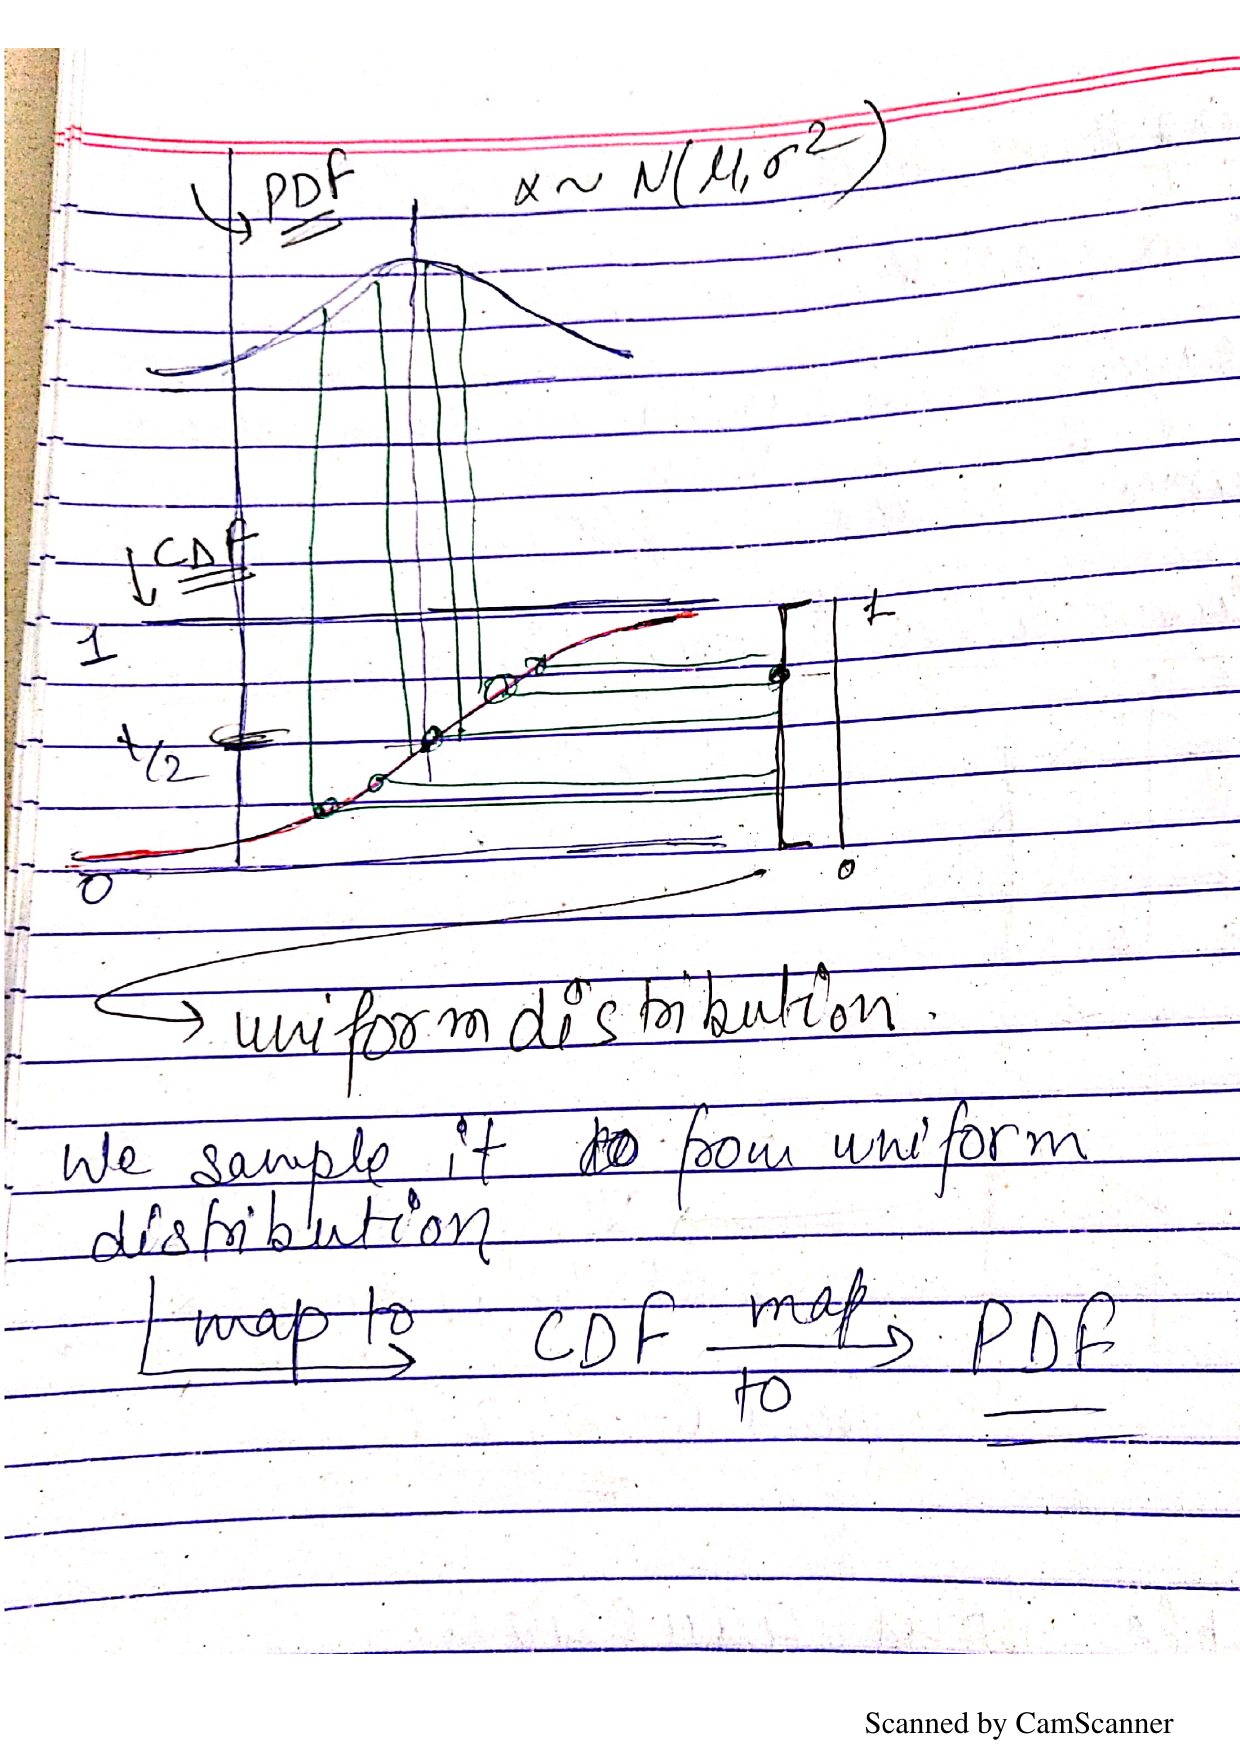 PDF x ~ N(μ, σ²)
CDF
1 1
1/2
0 0
uniform distribution.
We sample it from uniform
distribution
map to CDF map to PDF
Scanned by CamScanner